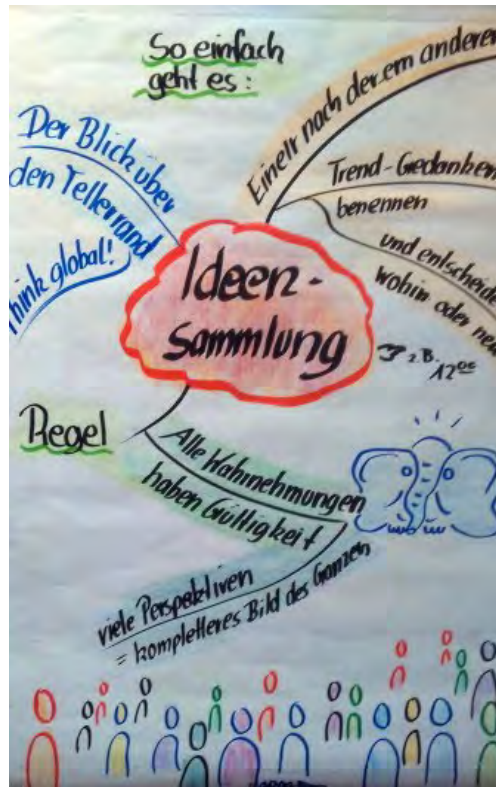 So einfach
geht es:
Der Blick über
den Tellerrand
Think global!
Eine/r nach der/m anderen
Trend-Gedanken
benennen
und entscheiden
wohin oder neu
Ideen-
sammlung
z.B.
12⁰⁰
Regel
Alle Wahrnehmungen
haben Gültigkeit
viele Perspektiven
= kompletteres Bild des Ganzen